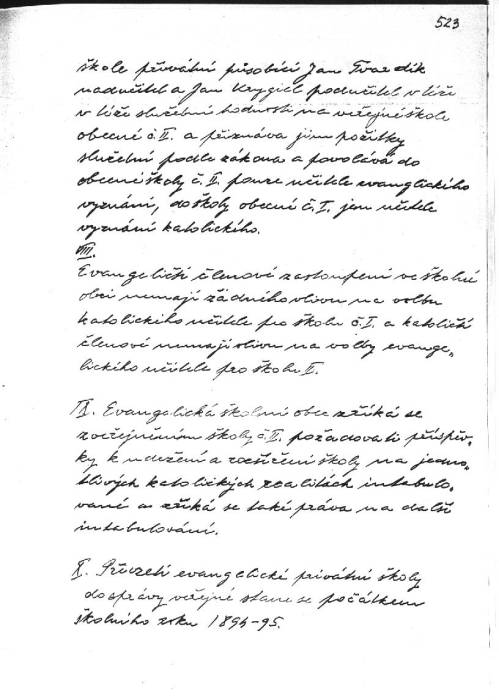 523
škole privátní působící Jan Tvardik
nadučitel a Jan Krygiel podučitel v téže
v téže služební hodnosti na veřejné škole
obecné č. II. a přiznává jim požitky
služební podle zákona a povolává do
obecné školy č. II. pouze učitele evanglického
vyznání, do školy obecné č. I. jen učitele
vyznání katolického.
VIII.
Evangeličtí členové zastoupení ve školní
obci nemají žádného vlivu na volbu
katolického učitele pro školu č. I. a katoličtí
členové nemají vlivu na volby evange-
lického učitele pro školu II.
IX. Evangelická školní obec zříká se
zveřejněním školy č. II. požadovati příspěv-
ky k udržení a rozšíření školy na jedno-
tlivých katolických realitách intabulo-
vané a zříká se také práva na další
intabulování.
X. Převzetí evangelické privátní školy
do správy veřejné stane se počátkem
školního roku 1894-95.